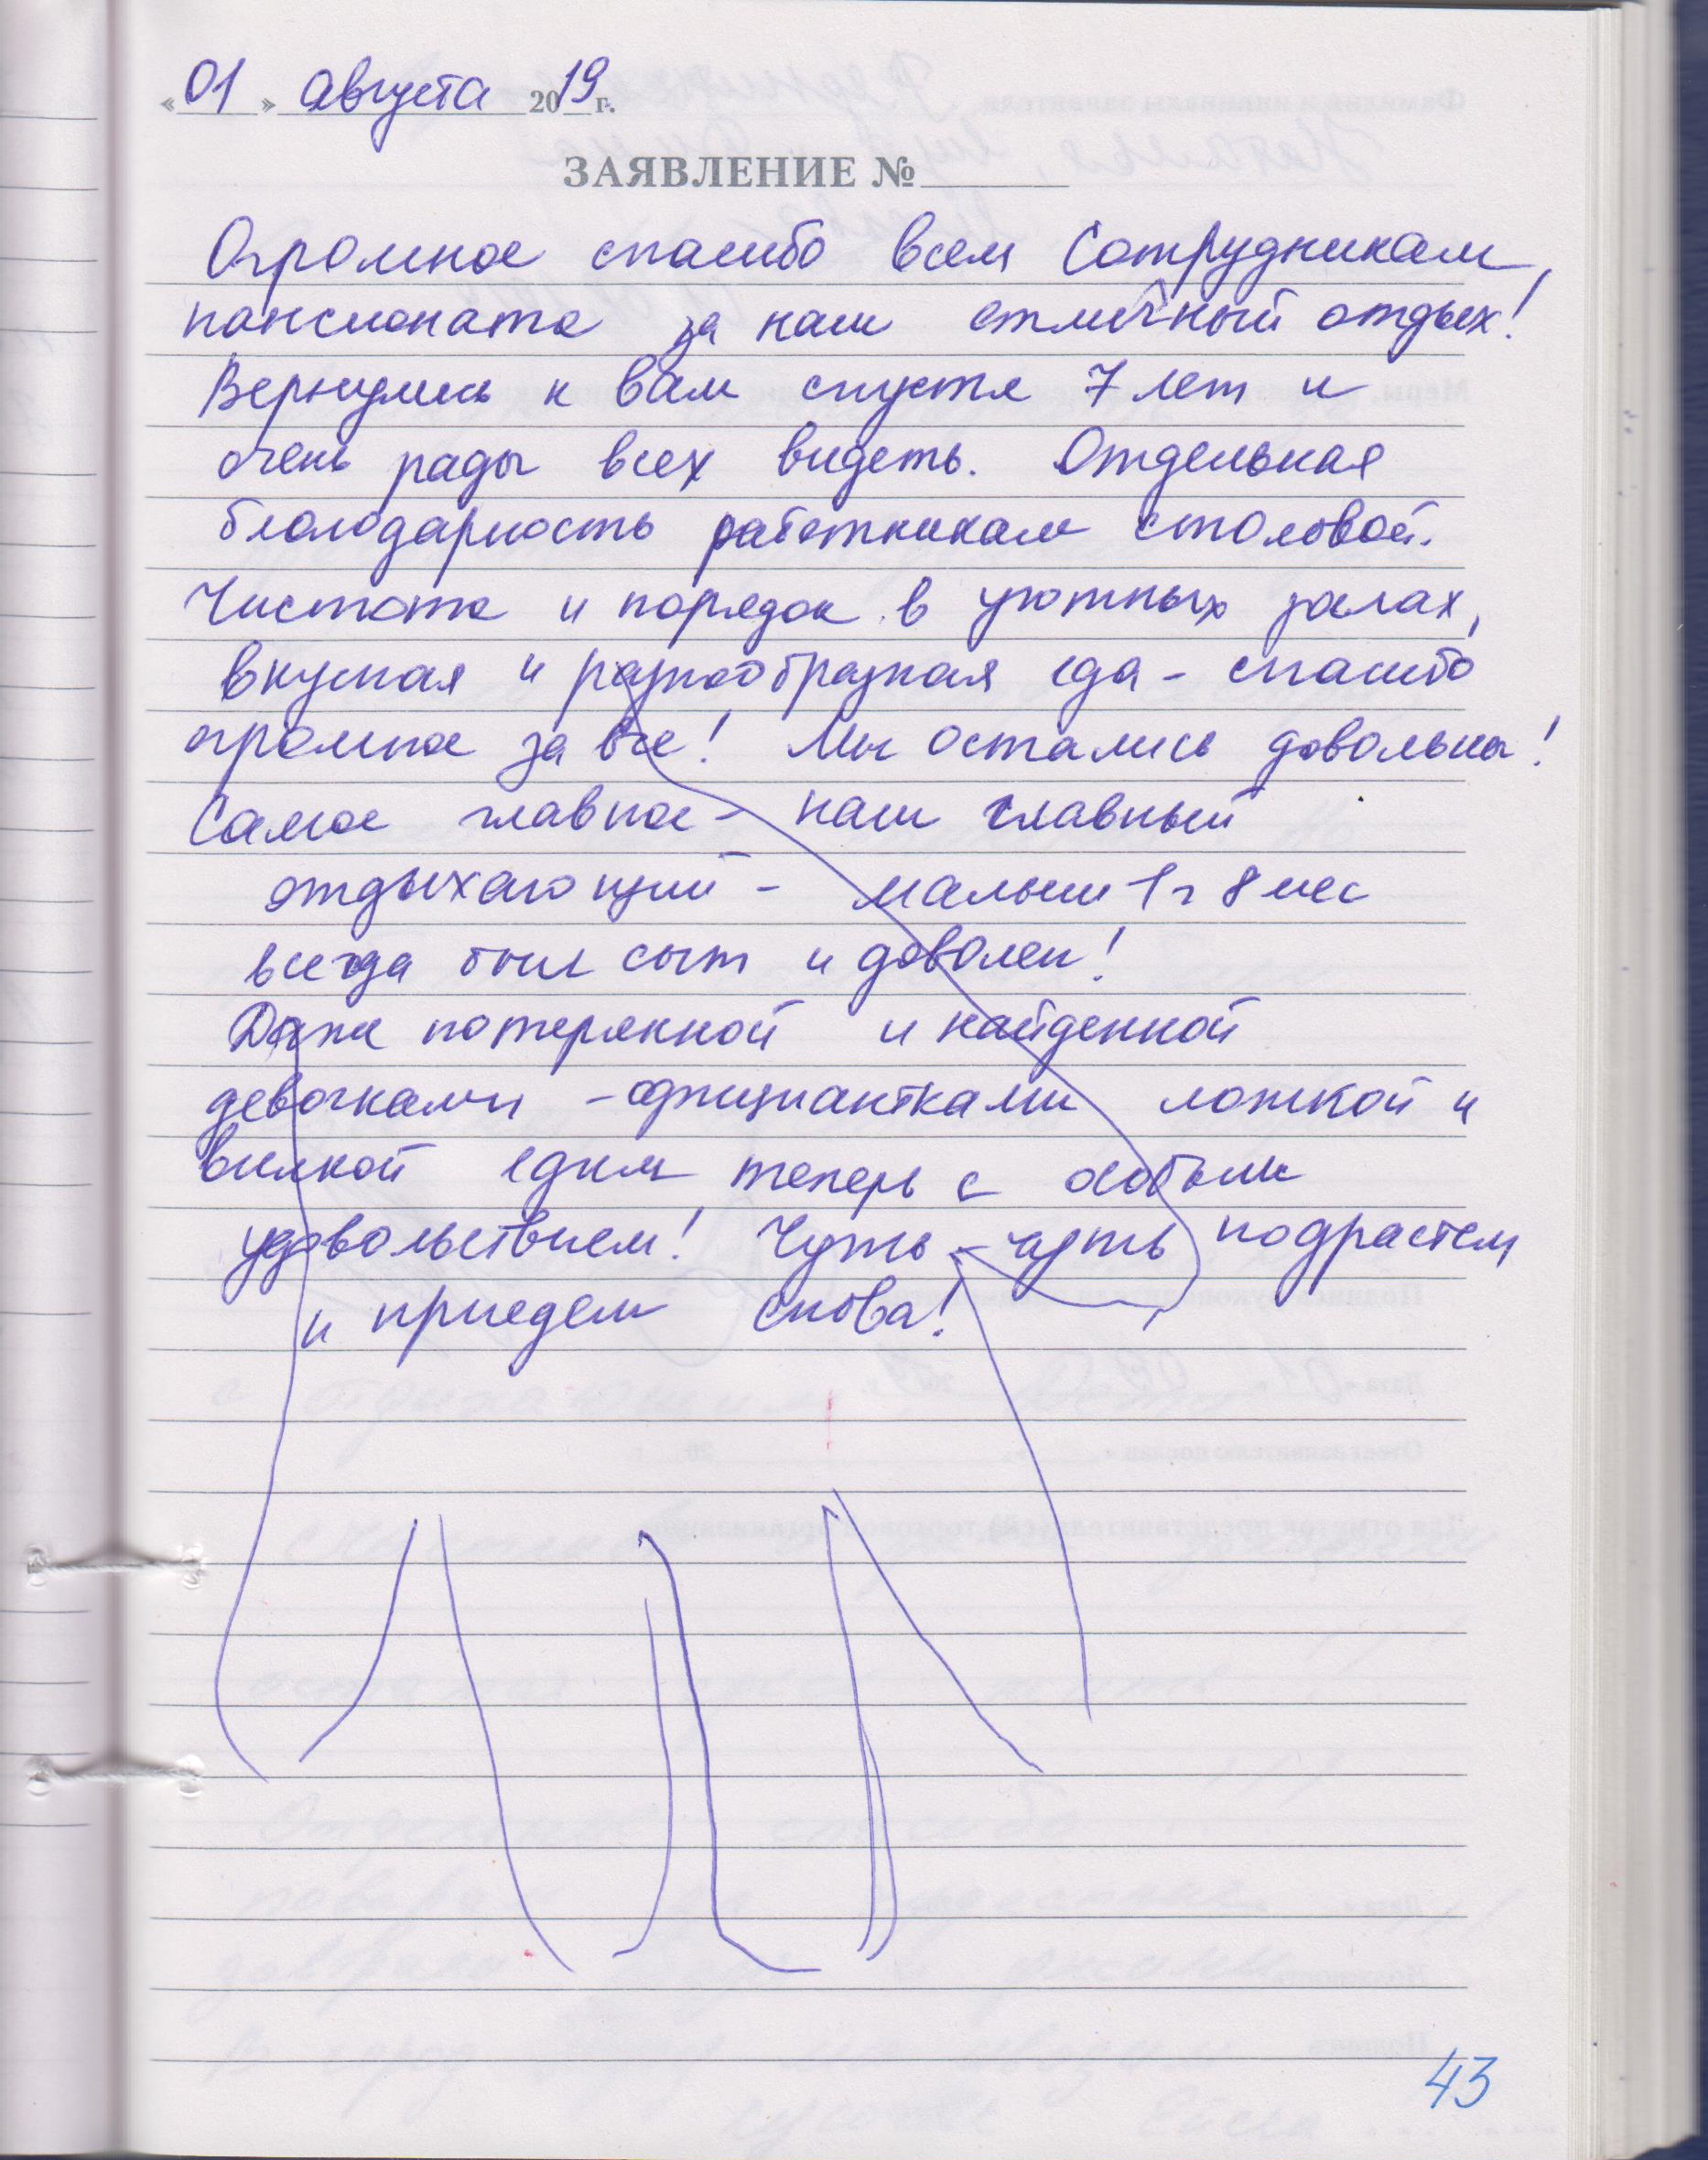 «01» августа 2019 г.
ЗАЯВЛЕНИЕ №
Огромное спасибо всем Сотрудникам,
пансионата за наш отличный отдых!
Вернулись к вам спустя 7 лет и
очень рады всех видеть. Отдельная
благодарность работникам столовой.
Чистота и порядок в уютных залах,
вкусная и разнообразная еда - спасибо
огромное за все! Мы остались довольны!
Самое главное - наш главный
отдыхающий - малыш 1 г 8 мес
всегда был сыт и доволен!
Даже потерянной и найденной
девочками - официантками ложкой и
вилкой едим теперь с особым
удовольствием! Чуть - чуть подрастем
и приедем снова!
43